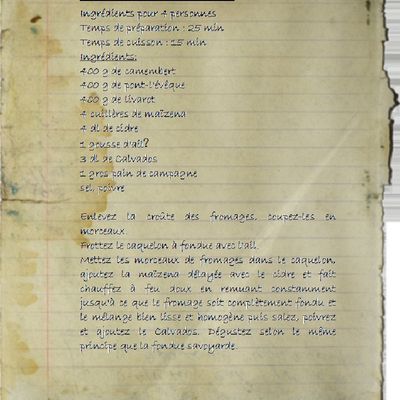 Ingrédients pour 4 personnes
Temps de préparation : 25 min
Temps de cuisson : 15 min
Ingrédients:
400 g de camembert
400 g de pont-l'évêque
400 g de livarot
4 cuillères de maïzena
4 dl de cidre
1 gousse d'ail?
3 dl de Calvados
1 gros pain de campagne
sel, poivre
Enlevez la croûte des fromages, coupez-les en
morceaux.
Frottez le caquelon à fondue avec l'ail.
Mettez les morceaux de fromages dans le caquelon,
ajoutez la maïzena délayée avec le cidre et fait
chauffez à feu doux en remuant constamment
jusqu'à ce que le fromage soit complètement fondu et
le mélange bien lisse et homogène puis salez, poivrez
et ajoutez le Calvados. Dégustez selon le même
principe que la fondue savoyarde.